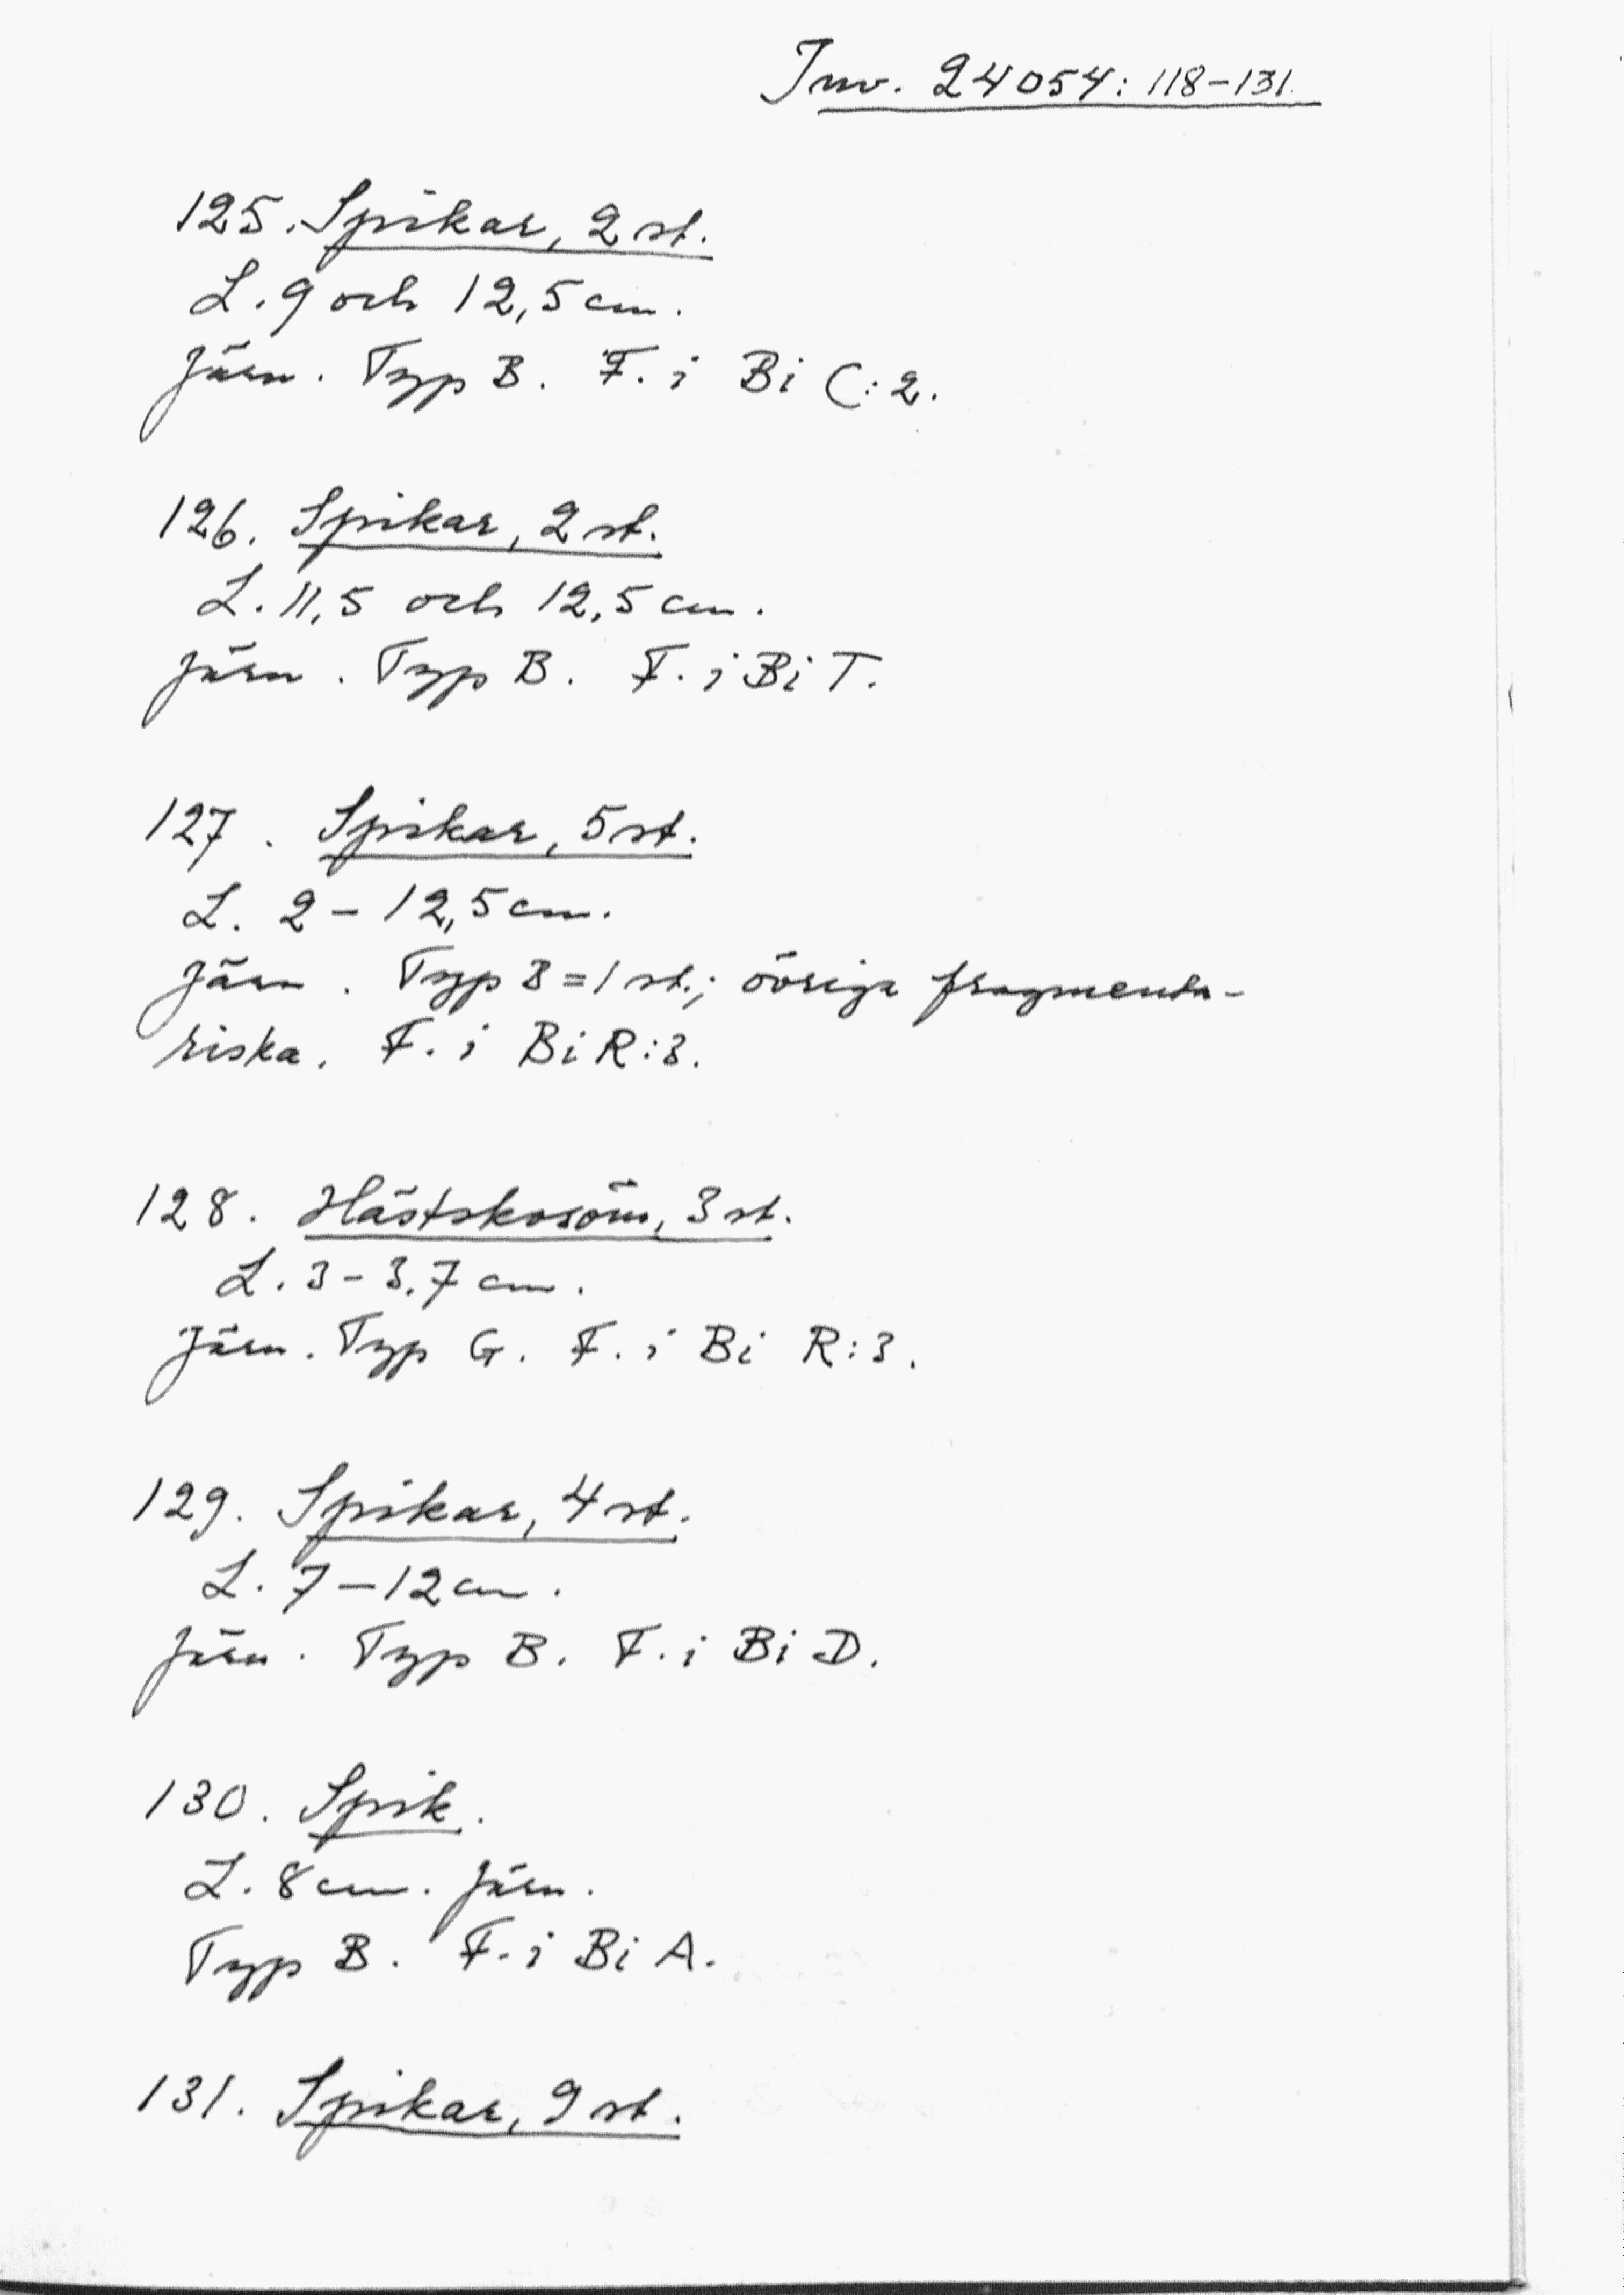 Inv. 24054: 118-131.
125. Spikar, 2 st.
L. 9 och 12,5 cm.
Järn. Typ B. F. i Bi C:2.
126. Spikar, 2 st.
L. 11,5 och 12,5 cm.
Järn. Typ B. F. i Bi T.
127. Spikar, 5 st.
L. 2 - 12,5 cm.
Järn. Typ B = 1 st.; övriga fragmenta-
riska. F. i Bi R:3.
128. Hästskosöm, 3 st.
L. 3 - 3,7 cm.
Järn. Typ G. F. i Bi R:3.
129. Spikar, 4 st.
L. 7 - 12 cm.
Järn. Typ B. F. i Bi D.
130. Spik.
L. 8 cm. Järn.
Typ B. F. i Bi A.
131. Spikar, 9 st.